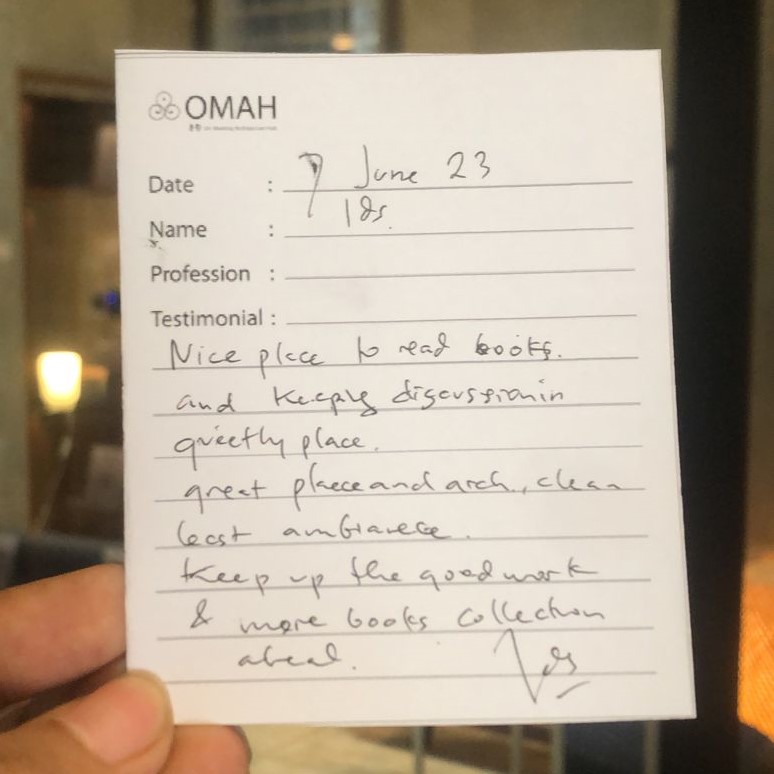 OMAH
Date : 7 June 23
Name : Ids.
Profession :
Testimonial :
Nice place to read books.
and keeping discussion in
quietly place.
great plaece and arch, clean
best ambiance.
Keep up the good work
& more books collection
ahead.